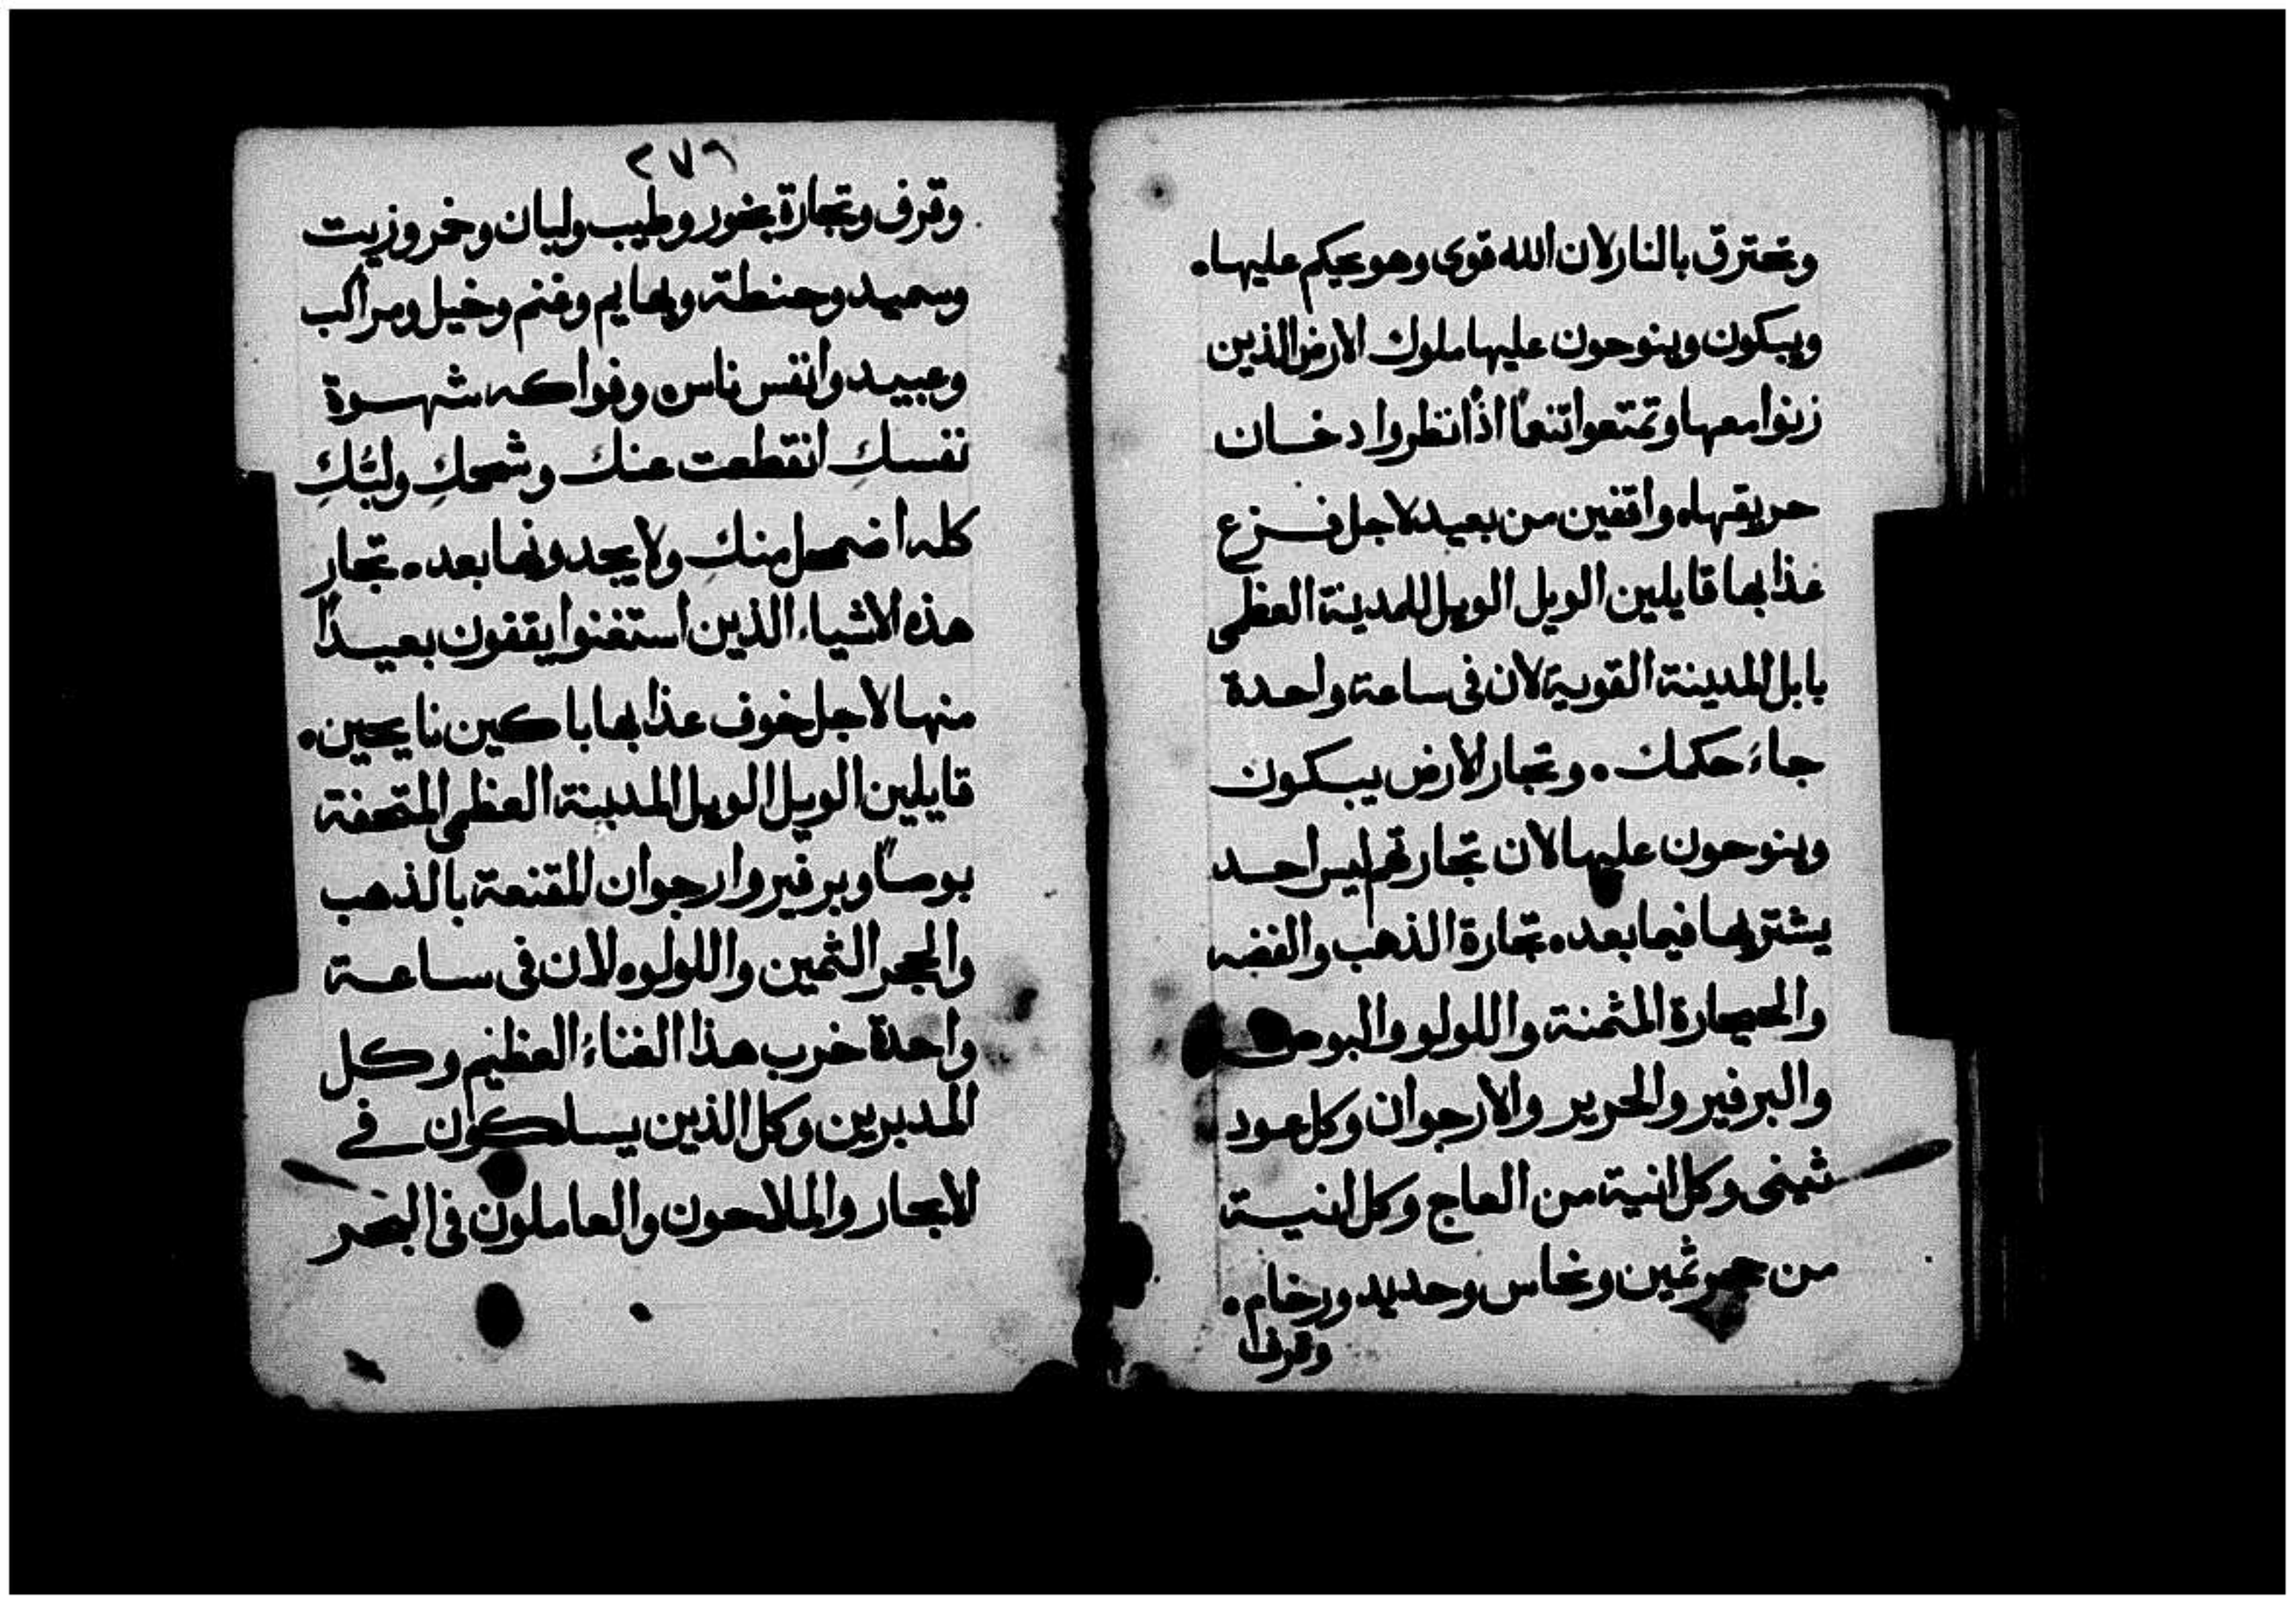 وتحترق بالنار لان الله قوى وهو يحكم عليها.
ويبكون وينوحون عليها ملوك الارض الذين
زنوا معها وتمتعوا تنعماً اذا نظروا دخان
حريقها. واقفين من بعيد لاجل فزع
عذابها قايلين الويل الويل للمدينة العظمى
بابل المدينة القوية لان فى ساعة واحدة
جاءَ حكمك. وتجار الارض يبكون
وينوحون عليها لان تجارتهم ليس احد
يشتريها فيما بعد. تجارة الذهب والفضه
والحجارة المثمنة واللولو والبوص
والبرفير والحرير والارجوان وكل عود
ثينى وكل انية من العاج وكل انية
من حجر ثمين ونحاس وحديد ورخام.
وقرفا
٢٧٦
وقرف وتجارة بخور وطيب ولبان وخمر وزيت
وسميد وحنطة وبهايم وغنم وخيل ومراكب
وعبيد وانفس ناس. وفواكه شهوة
نفسكِ انقطعت عنك وشحمكِ ولبّكِ
كله اضمحل منكِ ولا يجدونها بعد. تجار
هذه الاشياء الذين استغنوا يقفون بعيداً
منها لاجل خوف عذابها باكين نايحين.
قايلين الويل الويل المدينة العظمى المتحفة
بوصاً وبرفير وارجوان المقنعة بالذهب
والحجر الثمين واللولو. لان فى ساعة
واحدة خرب هذا الغناءُ العظيم وكل
المدبرين وكل الذين يسلكون فى
الابحار والملاحون والعاملون فى البحر